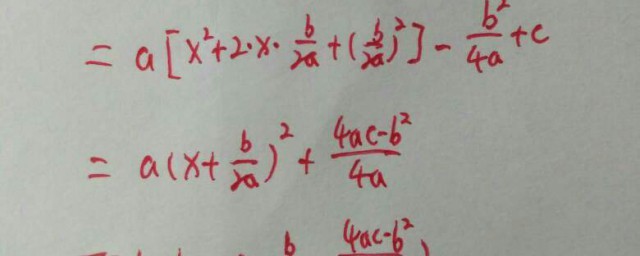 = a[x²+2·x·b/2a+(b/2a)²]-b²/4a+c
= a(x+b/2a)²+4ac-b²/4a
b 4ac-b²)